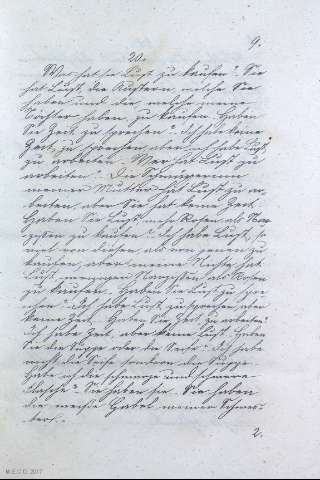 9.
20.
Was hat sie Lust zu kaufen? Sie
hat Lust, die Austern, welche Sie
haben und die welche meine
Töchter haben, zu kaufen. Haben
Sie Zeit zu sprechen? Ich habe keine
Zeit, zu sprechen, aber ich habe Lust
zu arbeiten. Wer hat Lust zu
arbeiten? Die
meiner Mutter hat Lust zu ar-
beiten, aber Sie hat keine Zeit.
Haben Sie Lust mehr Rosen als Nar-
zissen zu kaufen? Ich habe Lust, so-
wol von diesen, als von jenen zu
kaufen, aber meine Nichte hat
Lust weniger Narzissen als Rosen
zu kaufen. Haben Sie Lust zu spre-
chen? Ich habe Lust zu sprechen, aber
keine Zeit. Haben Sie Zeit zu arbeiten?
Ich habe Zeit, aber keine Lust. Haben
Sie die Suppe oder die Seife? Ich habe
nicht die Seife sondern die Suppe.
Habe ich die schwarze und
Tasche? Sie haben sie. Sie haben
die weiße Gabel meiner Schwes-
ter.
2.
M.E.C.D. 2017